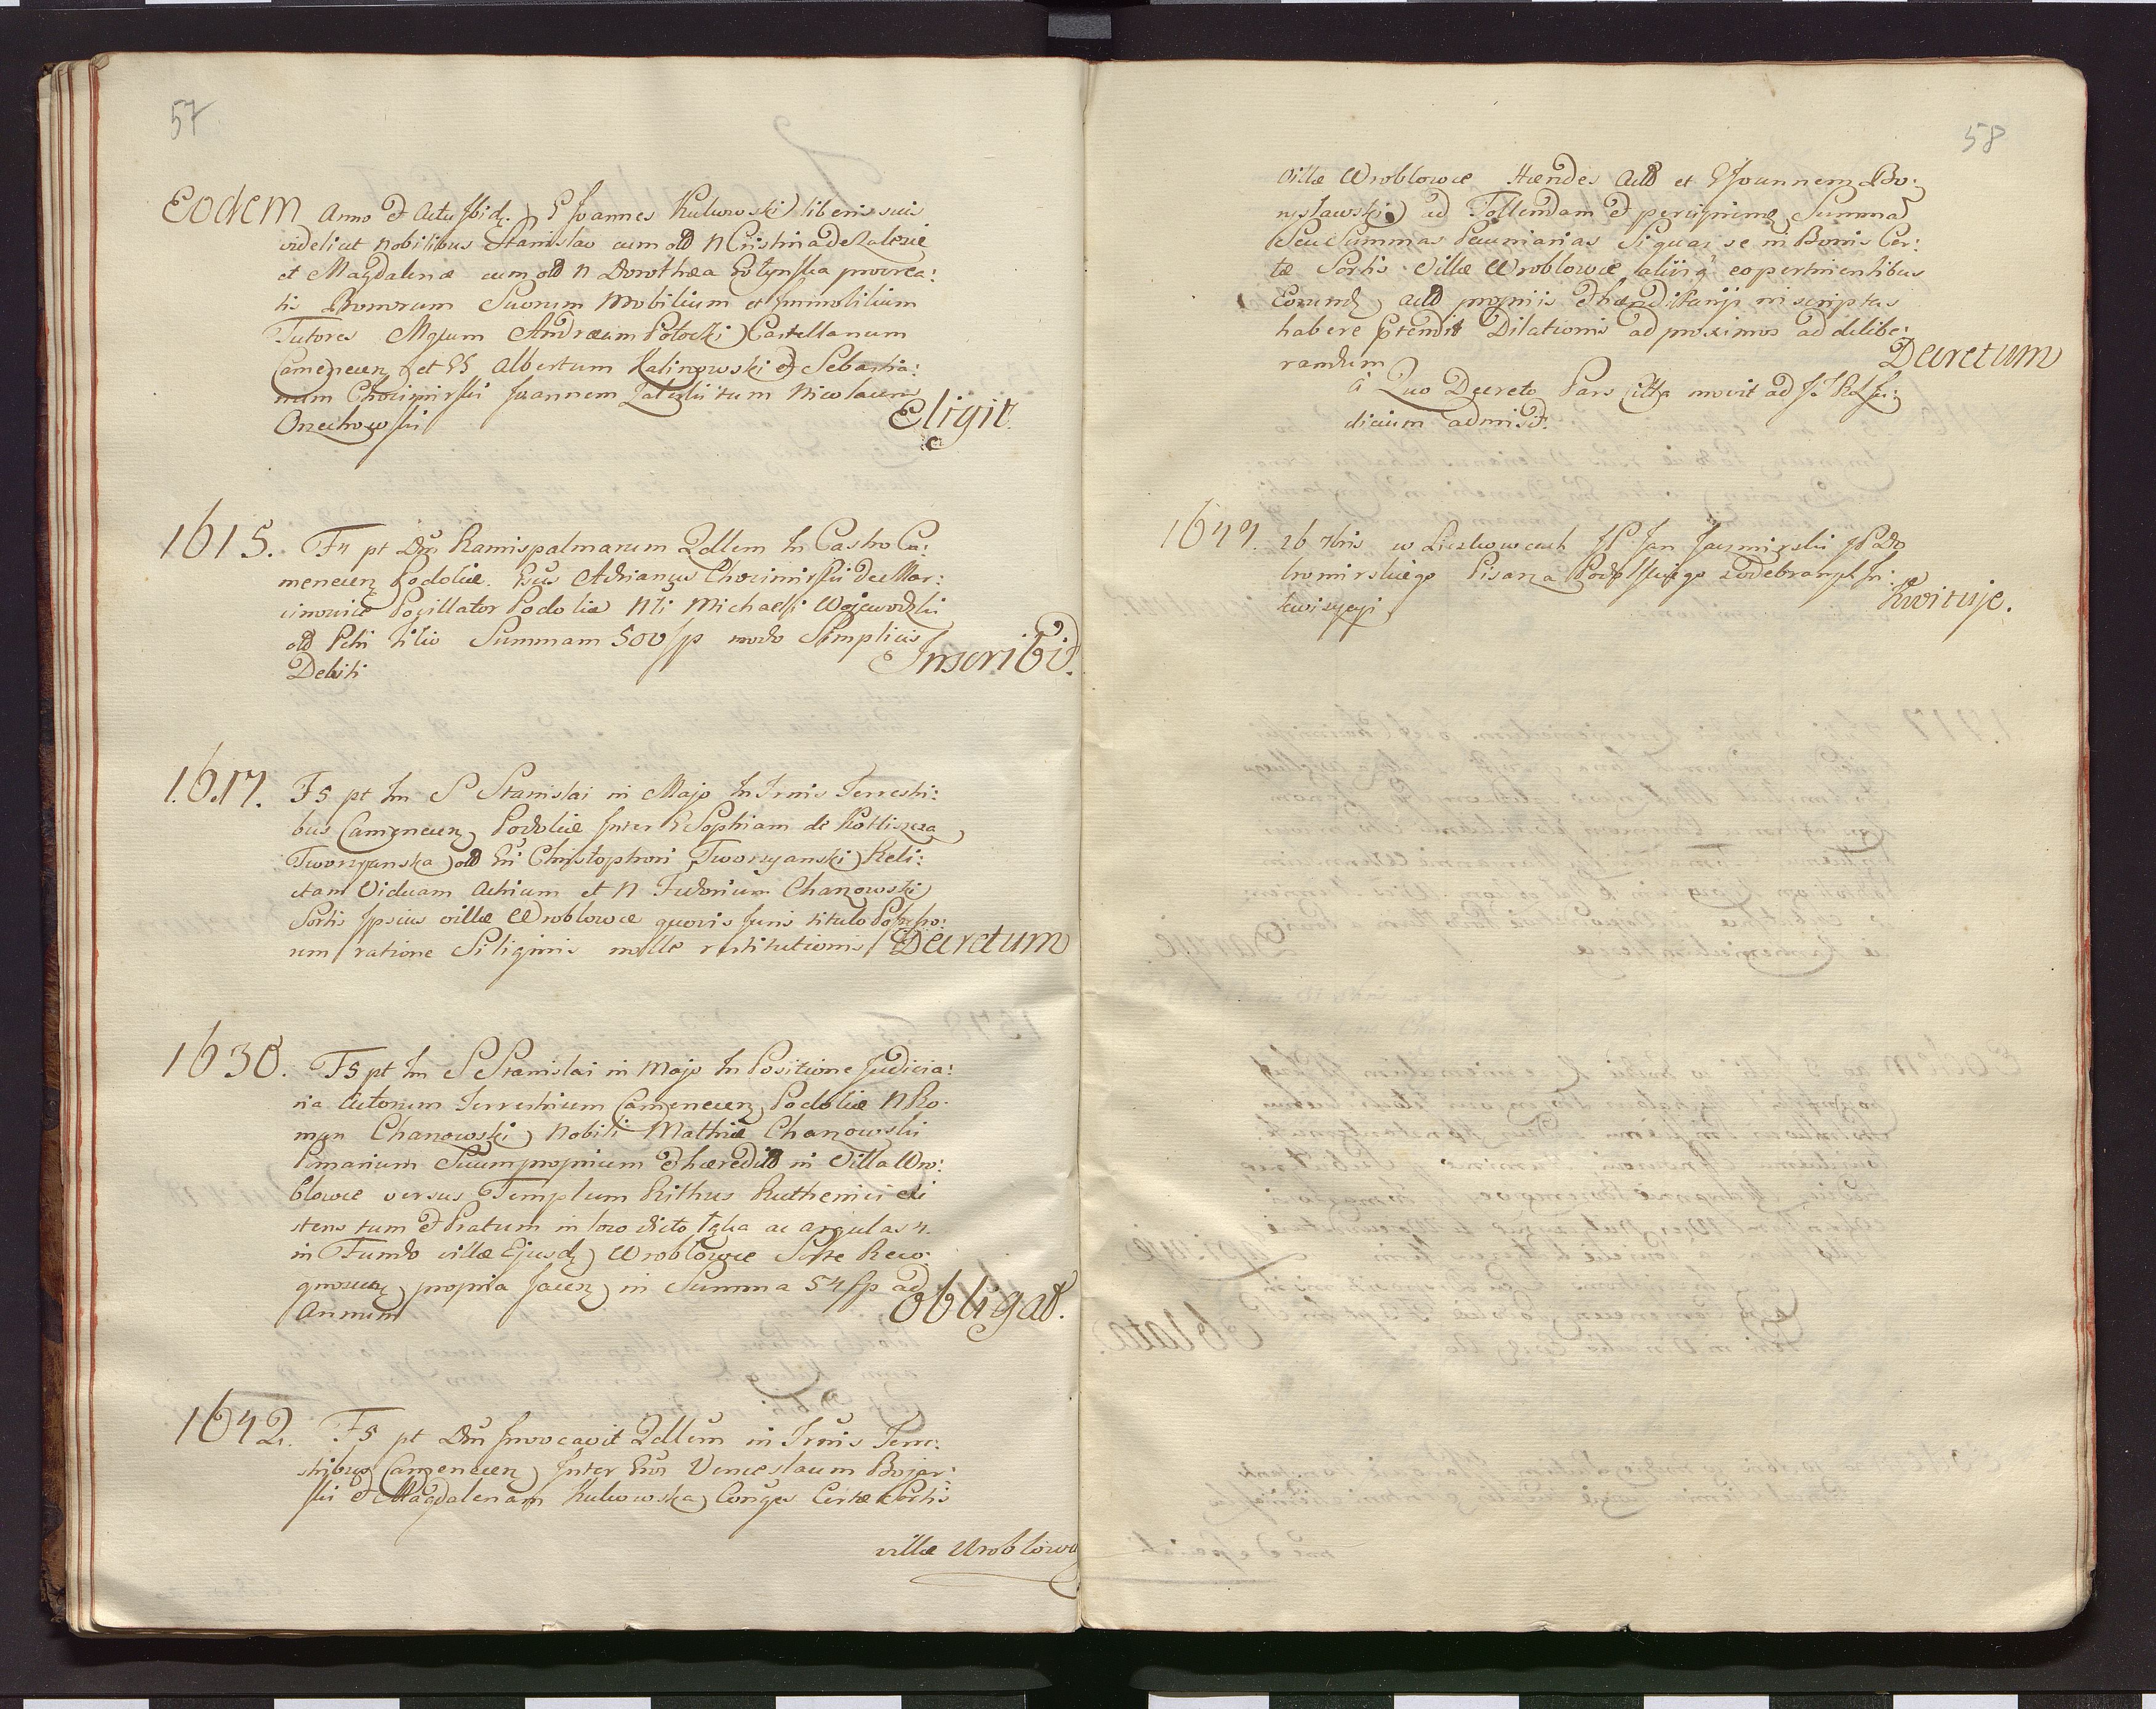 57
Eodem Anno et Actu Ibidq. G Joannes Kulwowski liberis suis
videlicet Nobilibus Stanislao cum old N Cristina de Zalesie
et Magdalenæ cum old N Dorothea procrea:
tis Bonorum Suorum Mobilium et Immobilium
Tutores Mgcum Andream Potocki Castellanum
Camenecen et GG Albertum Kalinowski et Sebastia:
num Chocimirski Joannem Zaleski tum Nicolaum
Orzechowski Eligit.
1615. F4 pt Dm Ramispalmarum Qdllem In Castro Ca:
menecen Podoliæ. Gsus Adrianus Chocimirski de Mar:
cinowice Pocillator Podoliæ Nli Michaeli Wojewodzki
old Petri filio Summam 500 fp modo Simplicis
Debiti Inscribit.
1617. F5 pt fm S Stanislai in Majo In Trnis Terrestri:
bus Camenecen Podoliæ Inter G Sophiam de Kotliszcza
Tworzyanska old Gsi Christophori Tworzyanski Reli:
ctam Viduam Actricem et N Fridricum Chanowski
Sortis Ipsius villæ Wroblowce quovis Juris titulo Possesso:
rem ratione Siliginis mollæ restitutionis Decretum
1630. F5 pt fm S Stanislai in Majo In Positione Judicia:
ria Actorum Terrestrium Camenecen Podoliæ N Ro-
man Chanowski Nobili Mathiæ Chanowski
Pomarium Suum proprium et hæredit in Villa Wro:
blowce versus Templum Rithus Ruthenici exi
stens tum et Pratum in loco dicto
in Fundo villæ Ejusdq Wroblowce Sorte Reco:
gnoscen propria Jacen in Summa 54 fp ad
Annum obligat.
1642. F5 pt Dm Invocavit Qdllem in Trnis Terre:
stribus Camenecen Inter Gsos Venceslaum Bojar:
ski et Magdalenam Kulwowska Conges Certæ Sortis
villæ Wroblowce
58
villæ Wroblowce Hæredes Act et G Joannem Bo:
nyslawski ad Tollendam et percipiend Summa
Seu Summas Pecuniarias Siquas se in Bonis Cer:
tæ Sortis villæ Wroblowce aliisq eo pertinentibus
Eorund Act propriis et hæreditariis inscriptas
habere prendit Dilationis ad proximos ad delibe:
randum Decretum
a Quo Decreto Pars citta movit ad J. R. Ju:
dicium admisit.
1647. 26 7bris w Liczkowcach JP Jan Jaczmirski JP
Chocimirskiego Pisarza Podolskiego z odebranych In:
kwizycyi Kwituje.